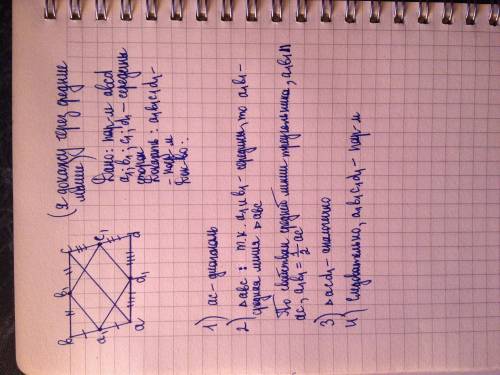 (я докажу через средние
линии)
Дано: пар-м abcd
a₁; b₁; c₁; d₁ - середины
сторон
Доказать: a₁b₁c₁d₁ -
- пар-м
Док-во:
b b₁ c
a₁ c₁
a d₁ d
1) ac - диагональ
2) ▵abc: т.к. a₁ и b₁ - середины, то a₁b₁ -
средняя линия ▵abc
По свойствам средней линии треугольника, a₁b₁ ||
ac, a₁b₁ = 1/2 ac
3) ▵acd - аналогично
4) Следовательно, a₁b₁c₁d₁ - пар-м